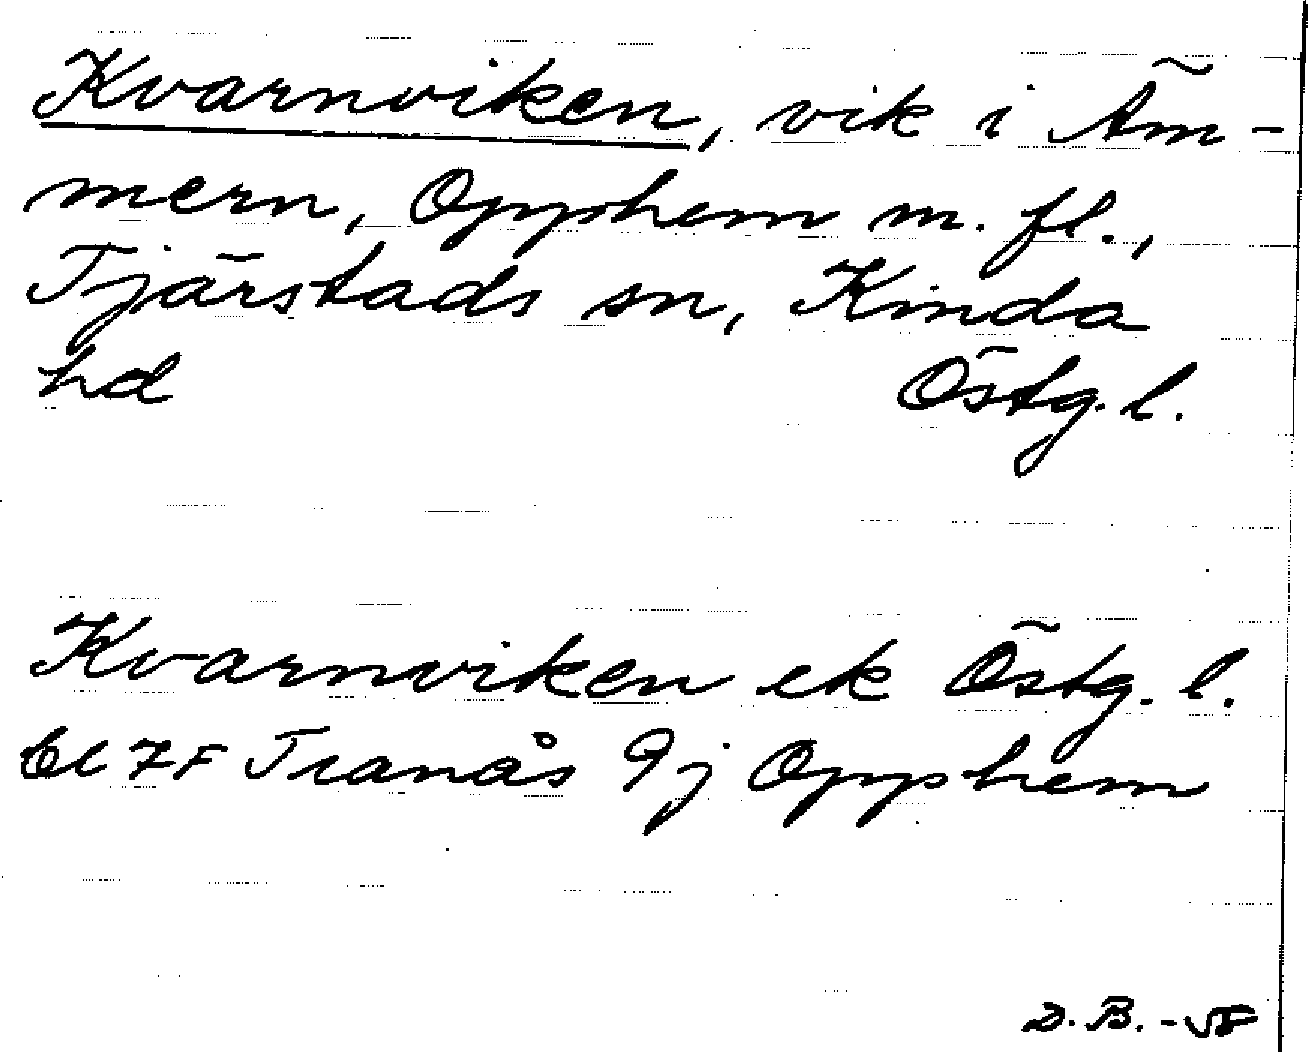 Kvarnviken, vik i Äm-
mern, Opphem m. fl.,
Tjärstads sn, Kinda
hd Östg. l.
Kvarnviken ek Östg. l.
bl 7F Tranås 9j Opphem
D. B. - 58